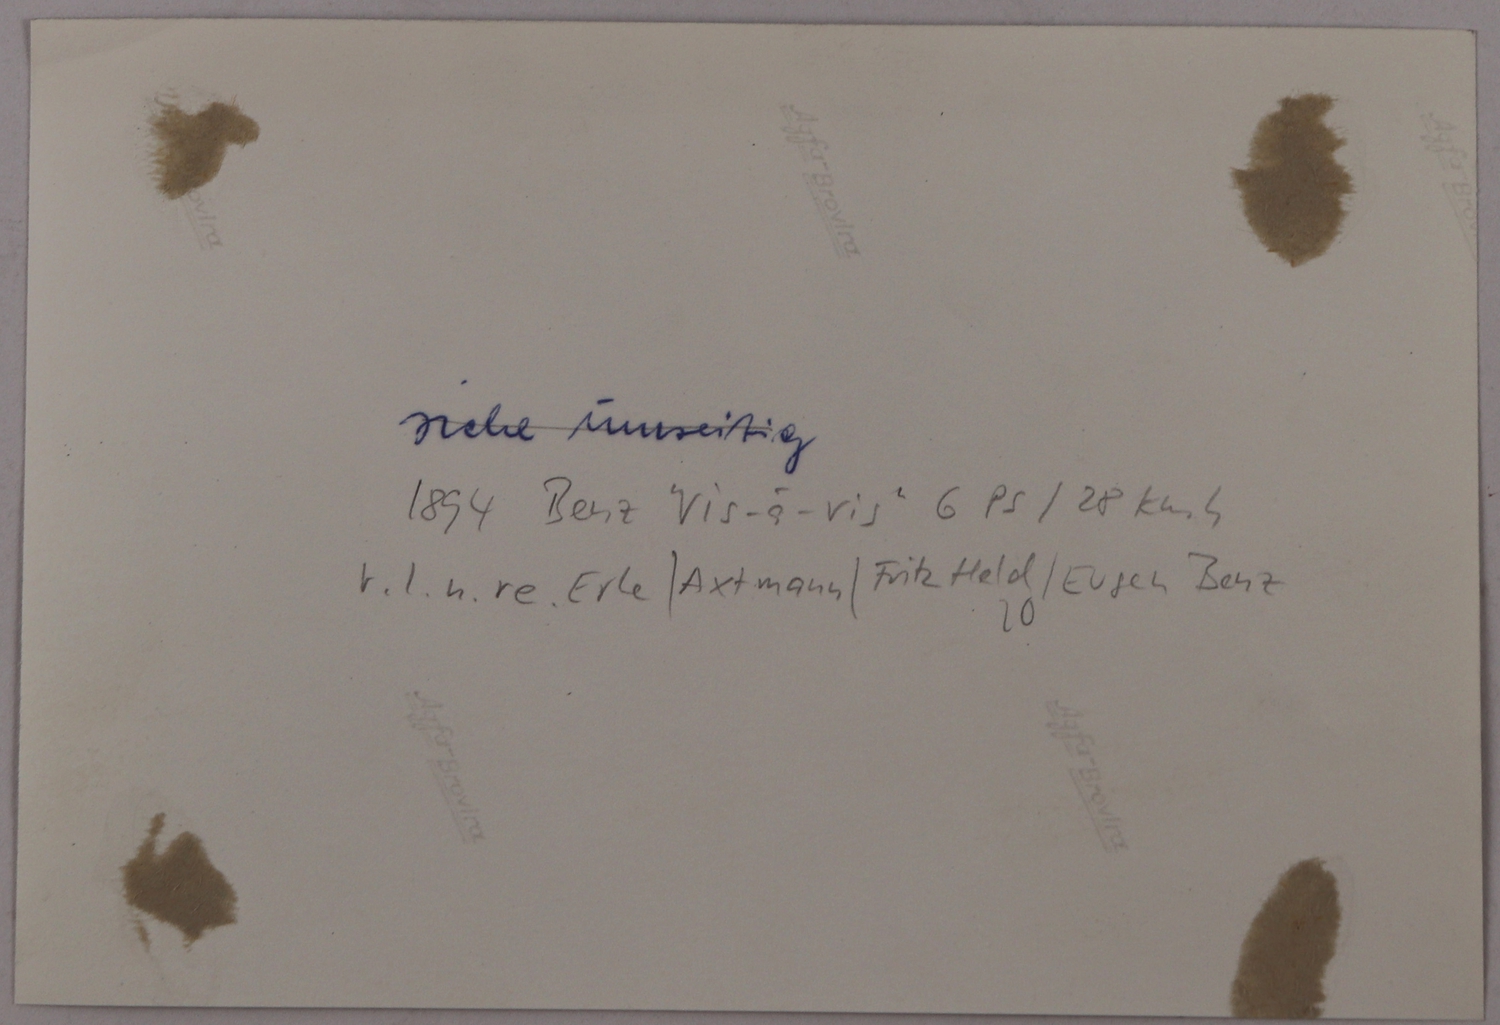 ovira
Agfa-Brovira
Agfa-Brov
siehe Umseitig
1894 Benz "Vis-à-vis" 6 PS / 28 km.h
v.l.n.re. Erle / Axtmann / Fritz Held / Eugen Benz
20
Agfa-Brovira
Agfa-Brovira